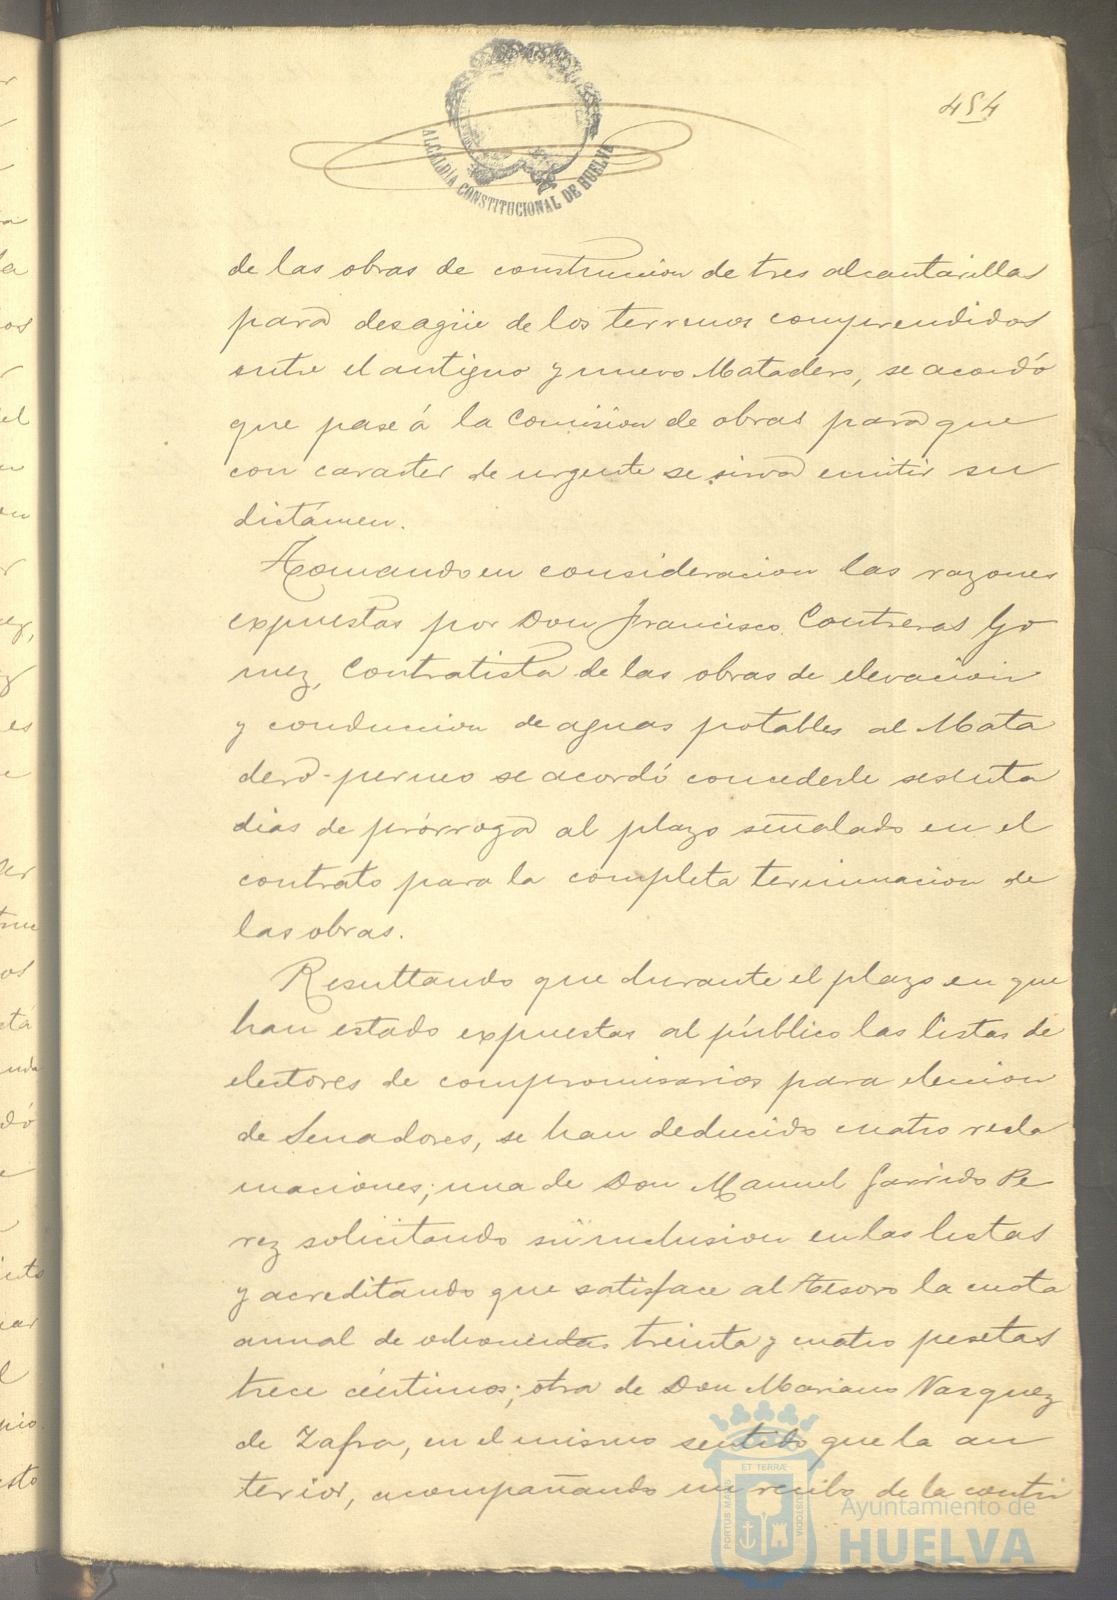 454
ALCALDÍA CONSTITUCIONAL DE HUELVA
de las obras de construccion de tres alcantarillas
para desagüe de los terrenos comprendidos
entre el antiguo y nuevo Matadero, se acordó
que pase á la Comision de obras para que
con caracter de urgente se sirva emitir su
dictámen.
Tomando en consideracion las razones
expuestas por Don Francisco Contreras Go
mez, Contratista de las obras de elevacion
y conduccion de aguas potables al Mata
dero se acordó concederle sesenta
dias de prórroga al plazo señalado en el
contrato para la completa terminacion de
las obras.
Resultando que durante el plazo en que
han estado expuestas al público las listas de
electores de compromisarios para eleccion
de Senadores, se han deducido cuatro recla
maciones; una de Don Manuel Garrido Pe
rez solicitando su inclusion en las listas
y acreditando que satisface al Tesoro la cuota
anual de ochocientas treinta y cuatro pesetas
trece céntimos; otra de Don Mariano Vazquez
de Zafra, en el mismo sentido que la an
terior, acompañando un recibo de la contri
ET TERRÆ
PORTUS MARIS
CUSTODIA
Ayuntamiento de
HUELVA